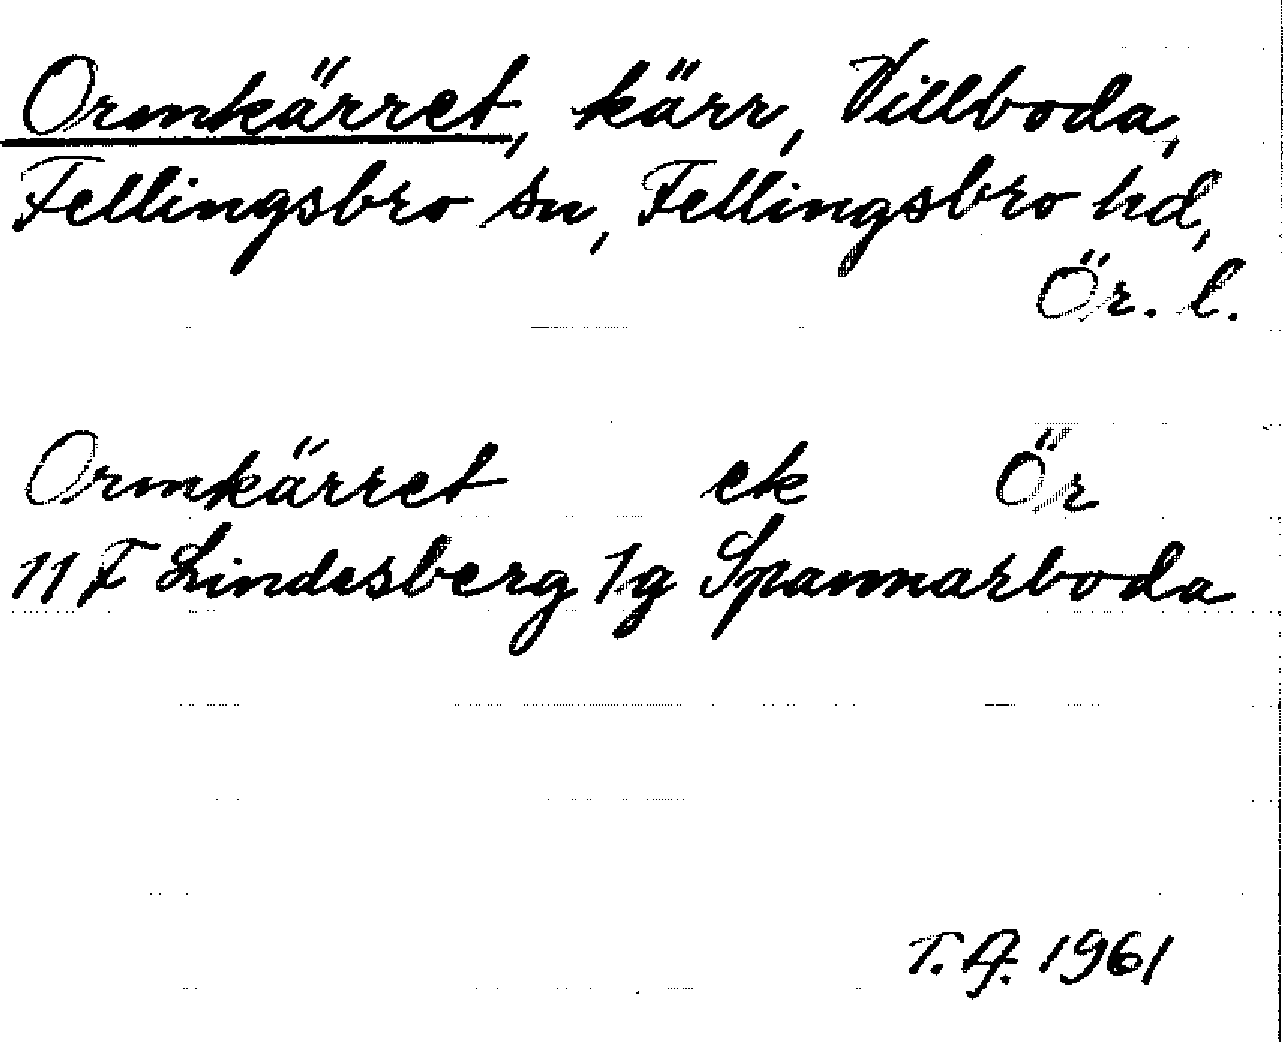 Ormkärret, kärr, Villboda,
Fellingsbro sn, Fellingsbro hd,
Ör. l.
Ormkärret ek Ör
11 F Lindesberg 1g Spannarboda
T. A. 1961